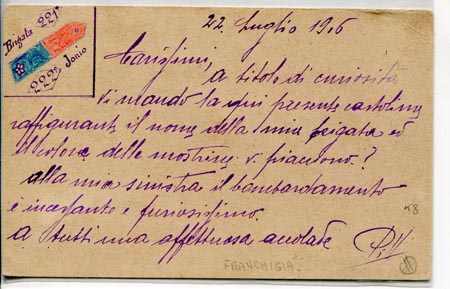 Brigata 221º
222º Jonio
22 Luglio 1916
Carissimi,
a titolo di curiosità
vi mando la qui presente cartolina
raffigurante il nome della mia brigata ed
il colore delle mostrine: vi piacciono?
Alla mia sinistra il bombardamento
è incessante e furiosissimo.
A tutti una affettuosa accolade
FRANCHIGIA